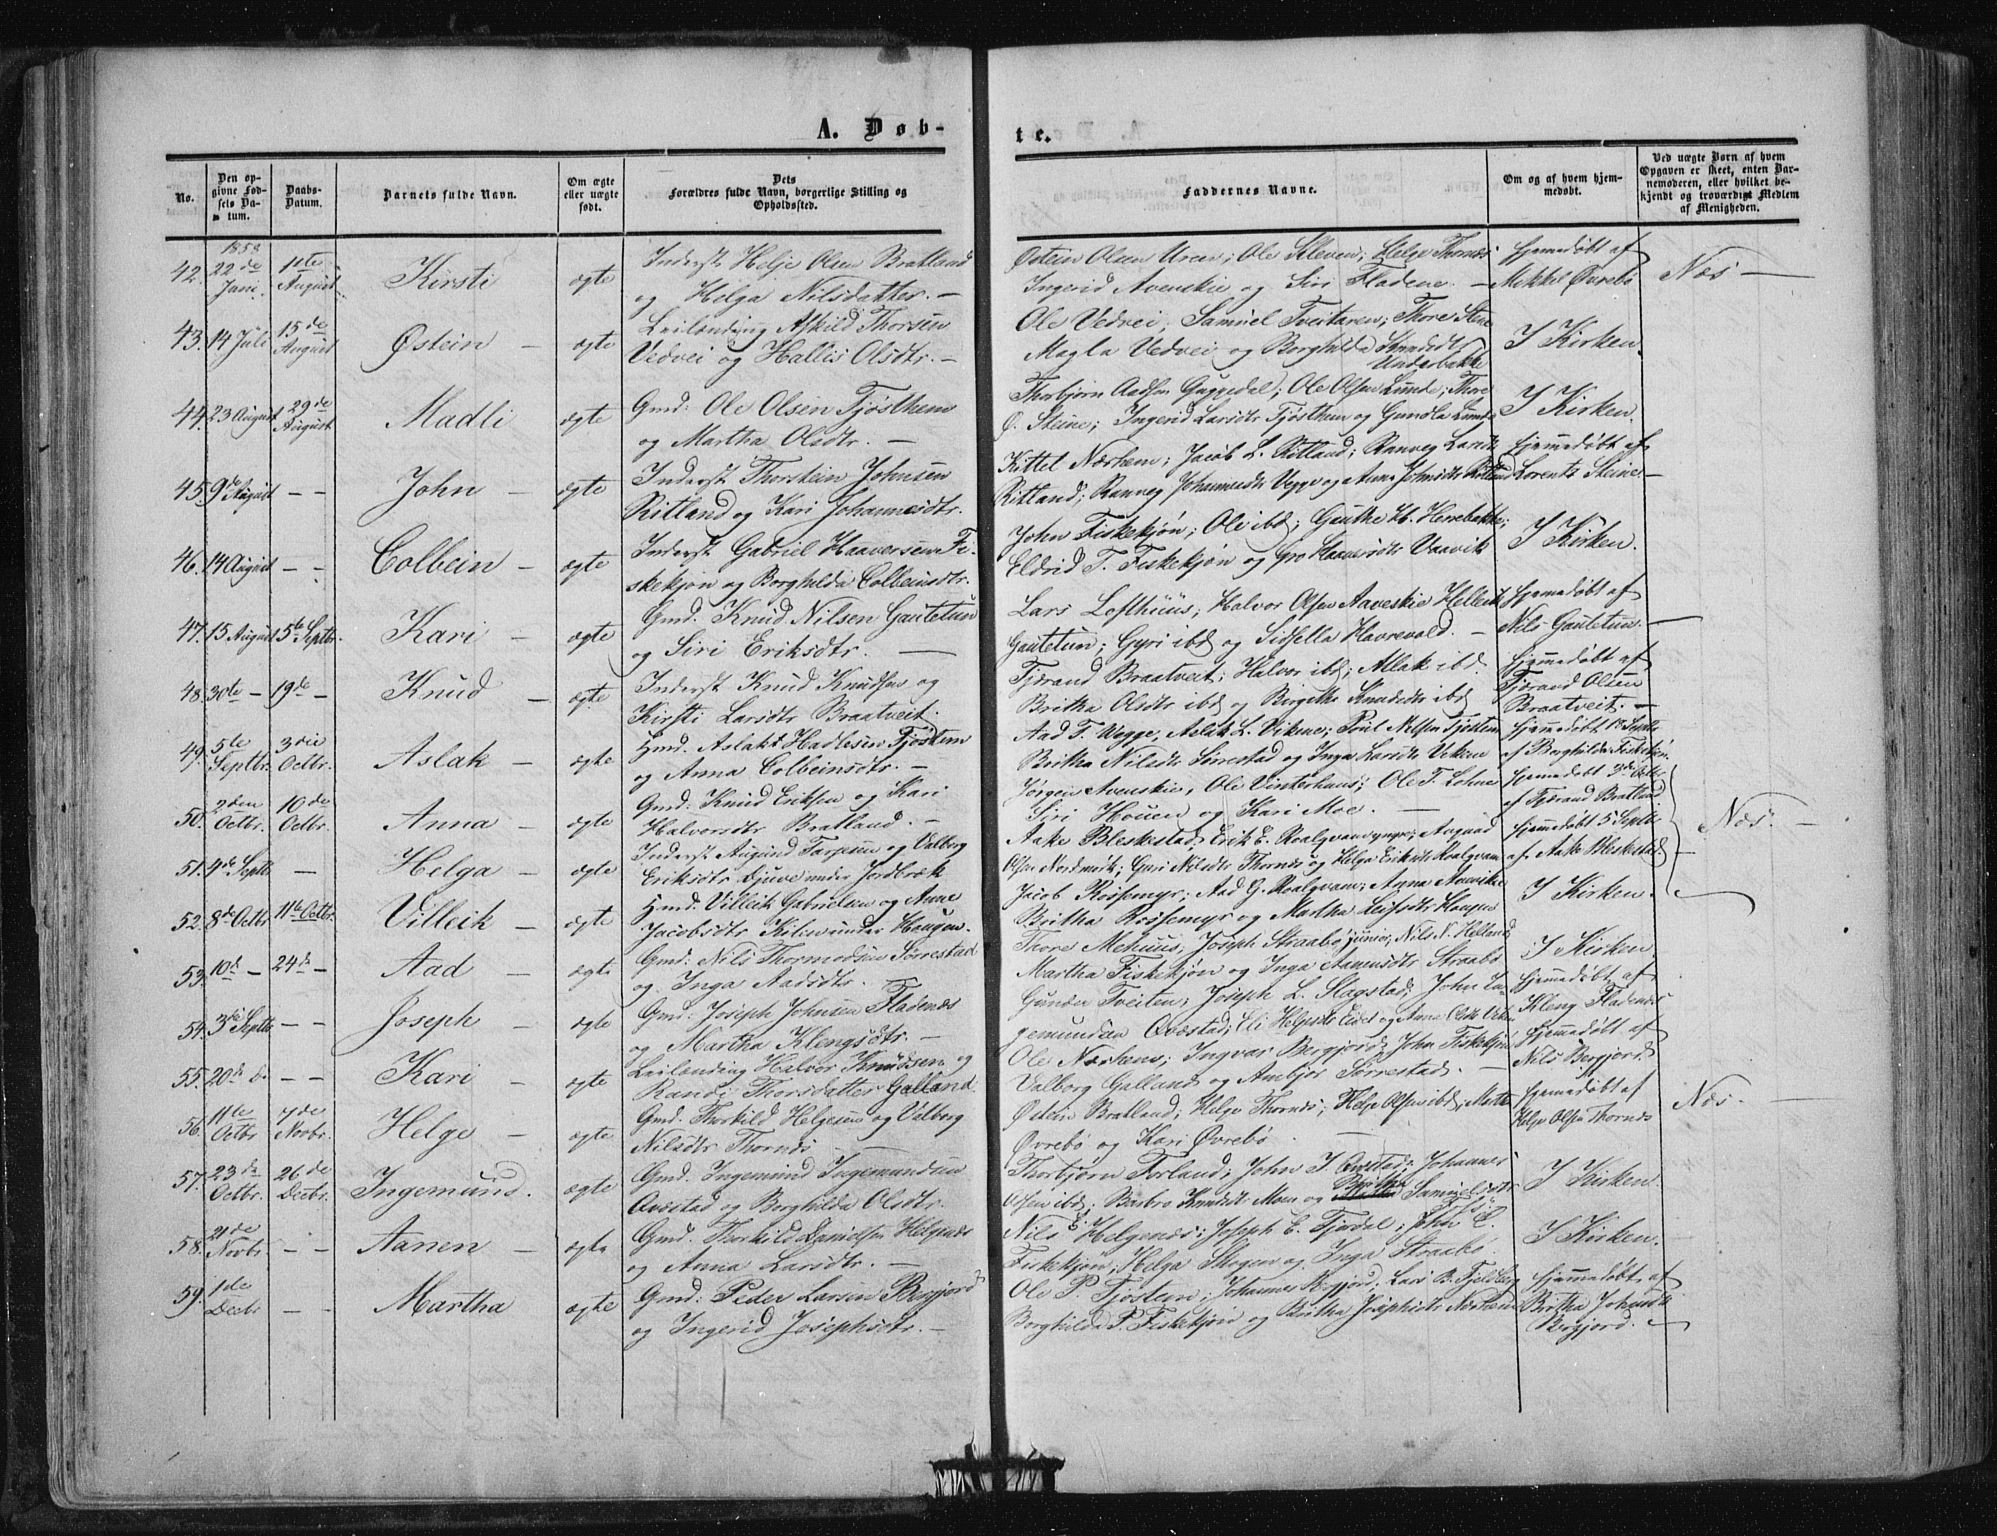 A. Døb-
te.
No.
Den op-
givne Fød-
sels Da-
tum.
Daabs-
Datum.
Barnets fulde Navn.
Om ægte
eller uægte
født.
Dets
Forældres fulde Navn, borgerlige Stilling og
Opholdssted.
Faddernes Navne.
Om og af hvem hjem-
medøbt.
Ved uægte Børn af hvem
Opgaven er skeet, enten Bar-
nemoderen, eller hvilket be-
kjendt og troværdigt Medlem
af Menigheden.
42. 22de Juni 11te August Kirsti ægte
Inderst Helje Olsen Bratland
og Helga Nilsdatter. —
Østein Olsen Uren; Ole Kleven; Helge Thornæs
Ingerid Avenskie og Siri Fladene. —
Hjemmedøbt af
Mekkel Øvrebø
Næs —
43. 14 Juli 15de August Østein — ægte
Leilending Askild Thorsen
Vedvei og Hallis Olsdtr. —
Ole Vedvei, Samuel Tveitaren; Thore Stene
Magla Vedvei og Borghilda Knudsdt
Underbakke
I Kirken.
44. 23 August 29de August Madli ægte
Gmd: Ole Olsen Tjøsthem
og Martha Olsdtr. —
Thorbjørn Aadsen Guggedal; Ole Olsen Lunde; Thore
Ø. Steine; Ingerid Larsdtr Tjøsthem og Gunola Lunde
I Kirken.
45. 9de August — — John — ægte
Inderst Thorstein Johnsen
Ritland og Kari Johannesdtr.
Kittel Nærhem; Jacob L. Ritland; Ranveg Larsdtr
Ritland; Ranveg Johannesdtr Vegge og Anna Johnsdtr Ritland
Hjemmedøbt af
Lorents Steine —
46. 14 August — — Colbein — ægte
Inderst Gabriel Haaversen Fi-
skekjøn og Borghilda Colbeinsdtr.
John Fiskekjøn; Ole ibd; Gauthe Th. Herrebakke;
Eldrid T. Fiskekjøn og Gro Haaversdtr Vaavik
I Kirken.
47. 15 August 5te Septbr. Kari — ægte
Gmd. Knud Nilsen Gautetun
og Siri Eriksdtr. —
Lars Lofthuus; Halvor Olsen Aaveskie Helleik
Gautetun; Gyri ibd og Sidsella Havrevold. —
Hjemmedøbt af
Nils Gautetun. —
48. 30te — 19de — Knud — ægte
Inderst Knud Knudsen og
Kirsti Larsdtr Braatveit.
Tjærand Braatveit; Halvor ibd; Allak ibd
Britha Olsdtr ibd og Birgithe Knudsdtr ibd
Hjemmedøbt af
Tjærand Olsen
Braatveit. —
49. 5te Septbr. 3die Octbr. Aslak — ægte
Hmd. Aslak Hadlesen Tjøstem
og Anna Colbeinsdtr. —
Aad T. Vegge, Aslak L. Vikene; Poul Nilsen Tjøstem
Britha Nilsdtr Sørrestad og Inga Larsdtr Vikene
Hjemmedøbt 12 Septbr
af Borghilda Fiskekjøn.
50. 2den Octbr. 10de Octbr. Anna — ægte
Gmd: Knud Eriksen og Kari
Halvorsdtr Bratland. —
Jørgen Avenskie, Ole Vinterhuus; Ole T. Lohne
Siri Houen og Kari Moe. —
Hjemmedøbt 3de Octbr
af Tjærand Bratland
Næs. —
51. 4de Septbr — Helga — ægte
Inderst Augund Tarjesen og Valborg
Eriksdtr Djuve under Jordbræk
Aake Bleskestad; Erik E. Roalqvam yngre; Augund
Olsen Nordmork; Guri Nilsdtr Thornæs og Helga Eriksdtr Roalqvam
Hjemmedøbt 5 Septbr
af Aake Bleskestad —
52. 8de Octbr 11te Octbr. Villeik — ægte
Hmd. Villeik Gabrielsen og Anne
Jacobsdtr under Haugen.
Jacob Røssemyr; Aad G. Roalqvam; Anna Aavikie
Britha Røssemyr og Martha Leifsdtr Haugen
I Kirken.
53. 10de — 24de — Aad — ægte
Gmd: Nils Thormodsen Sørrestad
og Inga Aadsdtr. —
Thore Mehuus; Joseph Straabø junior; Nils N. Helland
Martha Fiskekjøn og Inga Aanensdtr Straabø
I Kirken
54. 3de Septbr — — Joseph — ægte
Gmd: Joseph Johnsen Fladenæs
og Martha Klengsdtr. —
Gunder Tveiten; Joseph L. Slagstad; John In-
gemundsen Ovæstad; Eli Helgesdtr Eidet og Anne Olsdtr
Hjemmedøbt af
Kleng Fladenæs
55. 20de do — — Kari — ægte
Leilending Halvor Knudsen og
Randi Thorsdatter Galland
Ole Nærhem; Ingvar Bergjord; John Fiskekjøn
Valborg Galland og Ambjør Sørrestad. —
Hjemmedøbt af
Nils Bergjord.
56. 11te Octbr 7de Novbr. Helge — ægte
Gmd. Thorkild Helgesen og Valborg
Nilsdtr Thornæs —
Østein Bratland; Helge Thornæs; Helje Olsen ibd; Mette
Øvrebø og Kari Øvrebø. —
Hjemmedøbt af
Helje Olsen Thornæs
Næs. —
57. 23de Octbr. 26de Decbr. Ingemund. ægte
Gmd. Ingemund Ingemundsen
Ovæstad og Borghilda Olsdtr.
Thorbjørn Forland; John I. Ovæstad; Johannes
Olsen ibd; Barbro Knudsdtr Moen og Britha Samuelsdtr
I Kirken.
58. 21de Novbr. — — Aanen — ægte
Gmd. Thorkild Danielsen Helgenæs
og Anna Larsdtr. —
Nils E. Helgenæs; Joseph E. Fjordal; John C.
Fiskekjøn; Helga Skogen og Inga Straabø.
I Kirken.
59. 1de Decbr — — Martha ægte
Gmd: Peder Larsen Bergjord
og Ingerid Josephsdtr. —
Ole P. Tjøstem; Johannes Bergjord; Lars B. Fjeldberg
Borghilda P. Fiskekjøn og Britha Josephsdtr Nærhem
Hjemmedøbt af
Britha Johnsdtr
Bergjord. —